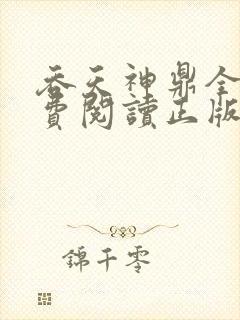 吞天神鼎全
費閱讀正版
錦千零